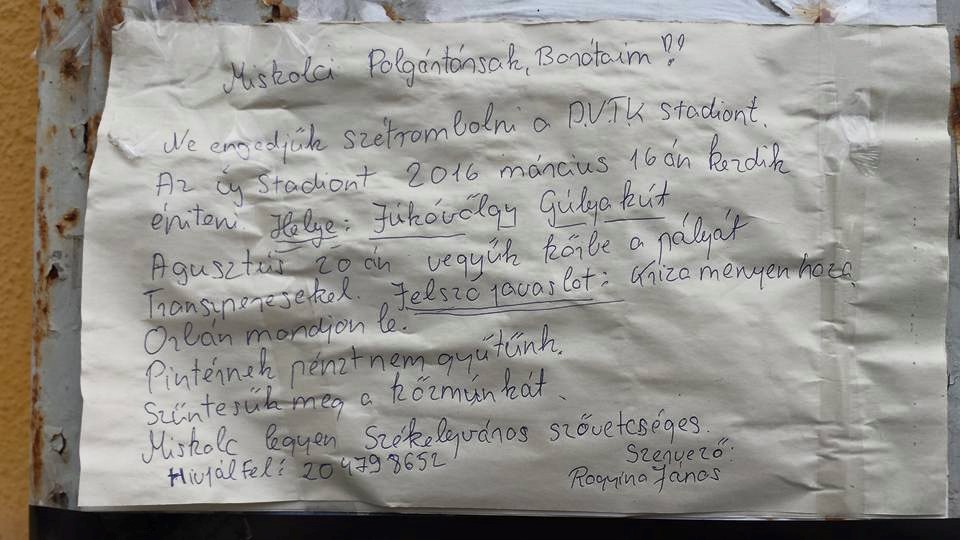 Miskolci Polgántánsak, Banátaim!!
Ne engedjük szétrombolni a D.V.T.K stadiont.
Az új stadiont 2016 március 16án kezdik
épiteni. Helye: Júkóvőlgy Gúlya kút
Agusztus 20 án vegyük kőrbe a pályát
Transzperesekel. Jelszó javaslot: Kriza menyen haza
Orbán mondjon le.
Pintérnek pénzt nem gyűtünk.
Szűntesük meg a kőzmúnkát.
Miskolc legyen Székelyváros szővetcséges.
Hivjál Fel: 20 4798652
Szervező:
János